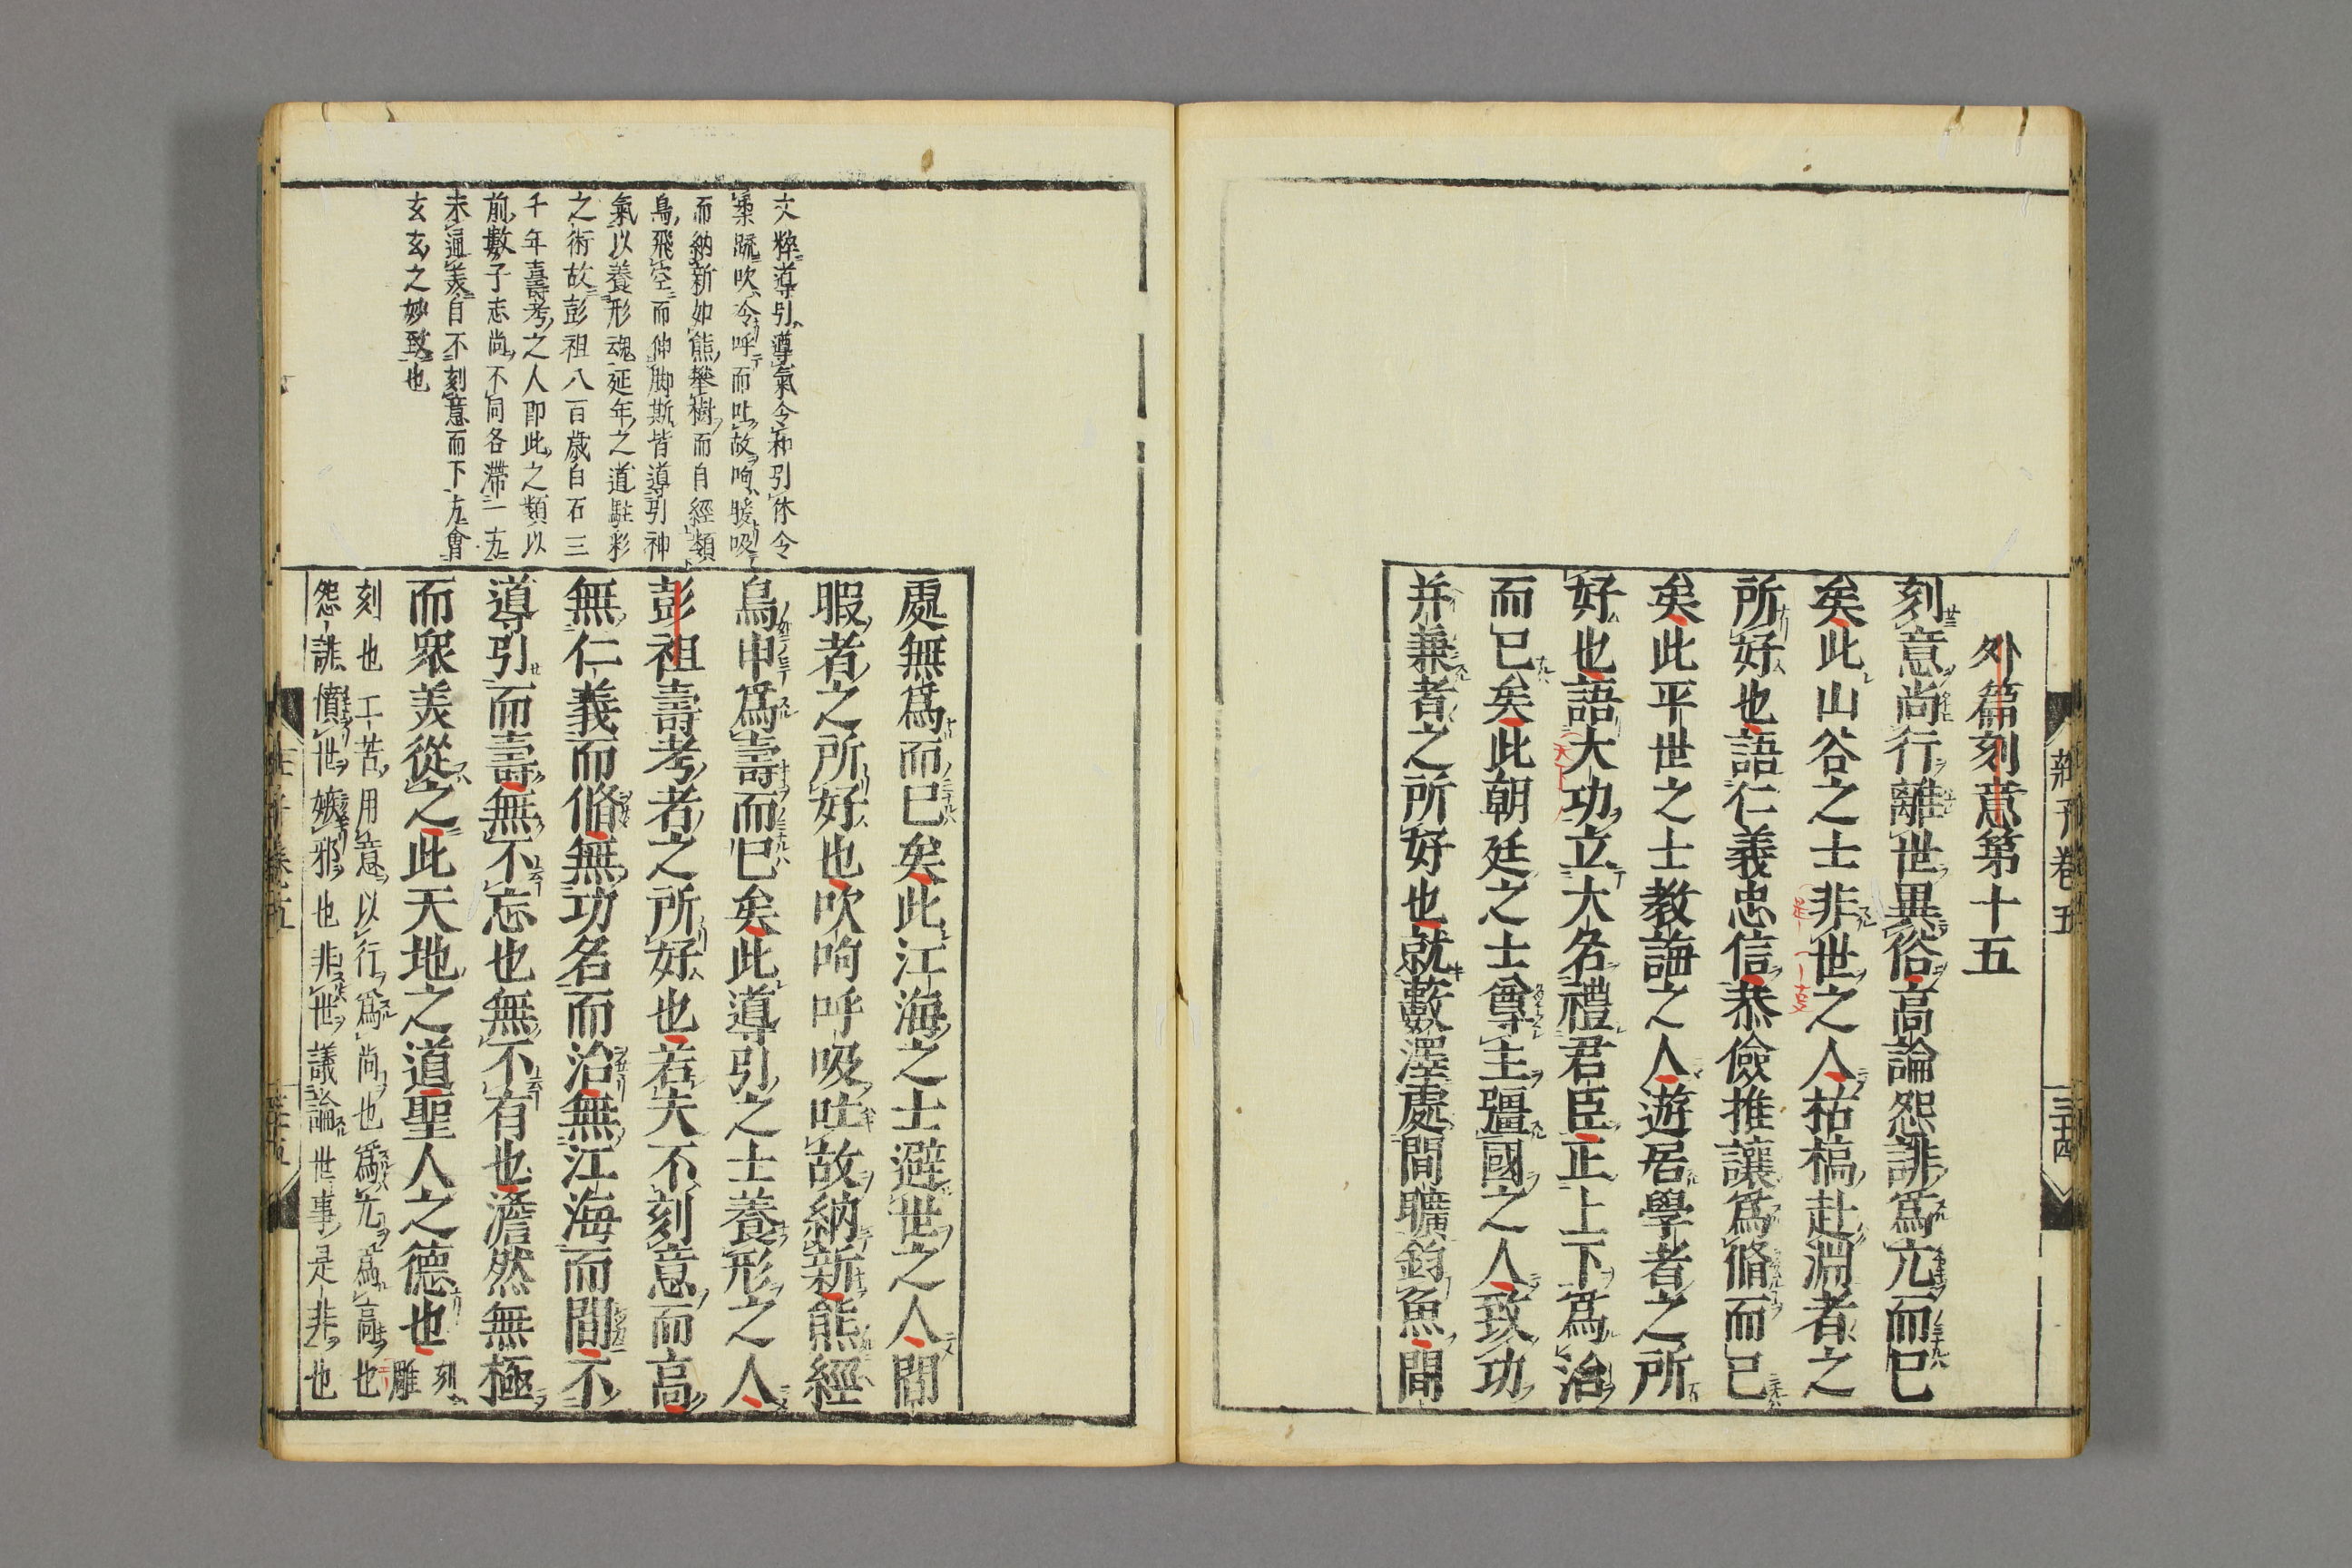 外篇刻意第十五
刻意尚行離世異俗高論怨誹爲亢而已
矣此山谷之士非世之人枯槁赴淵者之
所好也語仁義忠信恭儉推讓爲脩而已
矣此平世之士教誨之人遊居學者之所
好也語大功立大名禮君臣正上下爲治
而已矣此朝廷之士尊主彊國之人致功
并兼者之所好也就藪澤處間曠釣魚間
處無爲而已矣此江海之士避世之人間
暇者之所好也吹呴呼吸吐故納新熊經
鳥申爲壽而已矣此導引之士養形之人
彭祖壽考者之所好也若夫不刻意而高
無仁義而脩無功名而治無江海而間不
導引而壽無不忘也無不有也澹然無極
而衆美從之此天地之道聖人之德也刻
雕
刻也工苦用意以行爲尚也爲亢爲高也
怨誹憤世嫉邪也非世議論世事是非也
文粹導引導氣令和引体令
柔疏吹冷呼而吐故呴暖吸
而納新如熊攀樹而自經類
鳥飛空而伸脚斯皆導引神
氣以養形魂延年之道駐彩
之術故彭祖八百歳白石三
千年壽考之人即此之類以
前數子志尚不同各滯一方
未通美自不刻意而下方會
玄玄之妙致也